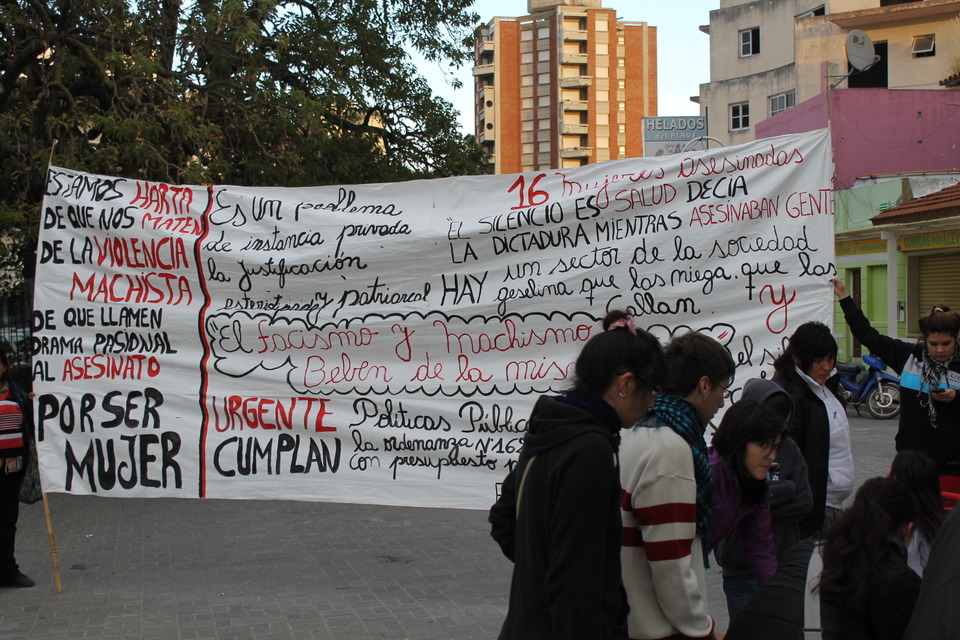 ESTAMOS HARTA
DE QUE NOS MATEN
DE LA VIOLENCIA
MACHISTA
DE QUE LLAMEN
DRAMA PASIONAL
AL ASESINATO
POR SER
MUJER
Es un problema
de instancia privada
la justificación
y patriarcal
16 mujeres asesinadas
"EL SILENCIO ES SALUD DECÍA
LA DICTADURA MIENTRAS ASESINABAN GENTE
HAY un sector de la sociedad
geselina que las niega. que las
Callan. y
"El facismo y machismo
Beben de la mis
el s
URGENTE
CUMPLAN
Políticas Públic
la ordenanza Nº
con presupuesto p
HELADOS
del Prave